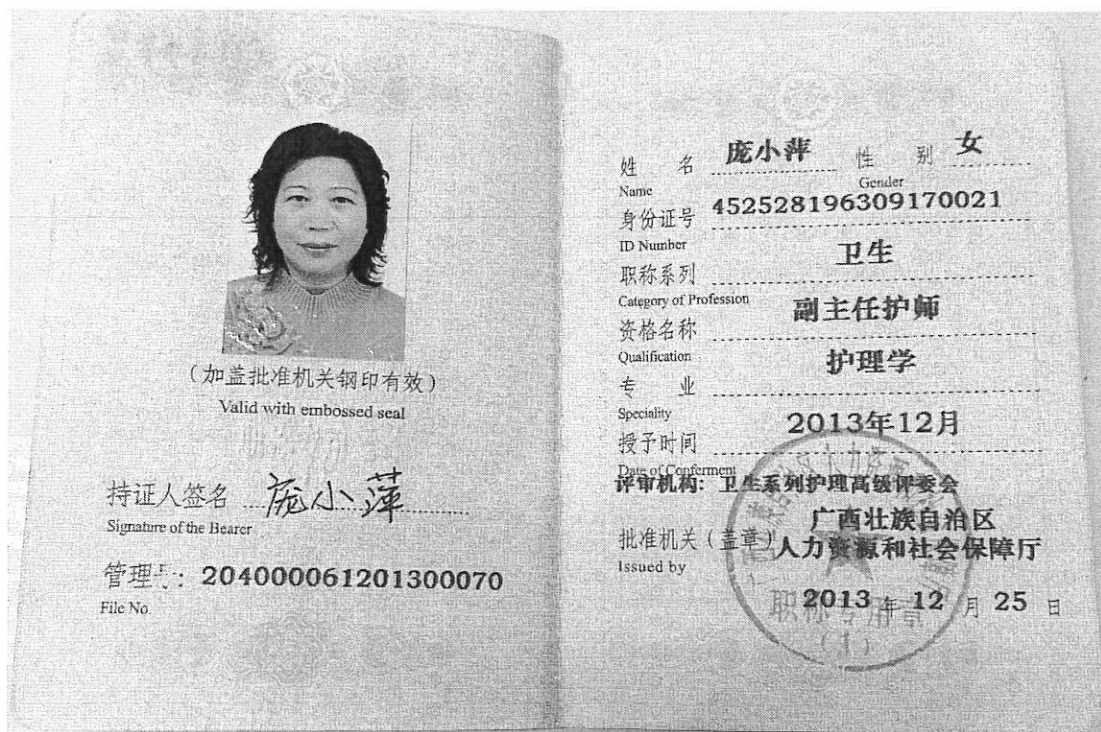 (加盖批准机关钢印有效)
Valid with embossed seal
持证人签名 庞小萍
Signature of the Bearer
管理号: 204000061201300070
File No.
姓 名 庞小萍 性 别 女
Name Gender
身份证号 452528196309170021
ID Number
职称系列 卫生
Category of Profession
资格名称 副主任护师
Qualification
专 业 护理学
Speciality
授予时间 2013年12月
Date of Conferment
评审机构: 卫生系列护理高级评委会
批准机关(盖章) 广西壮族自治区
人力资源和社会保障厅
Issued by
2013 年 12 月 25 日
职称专用章
(1)